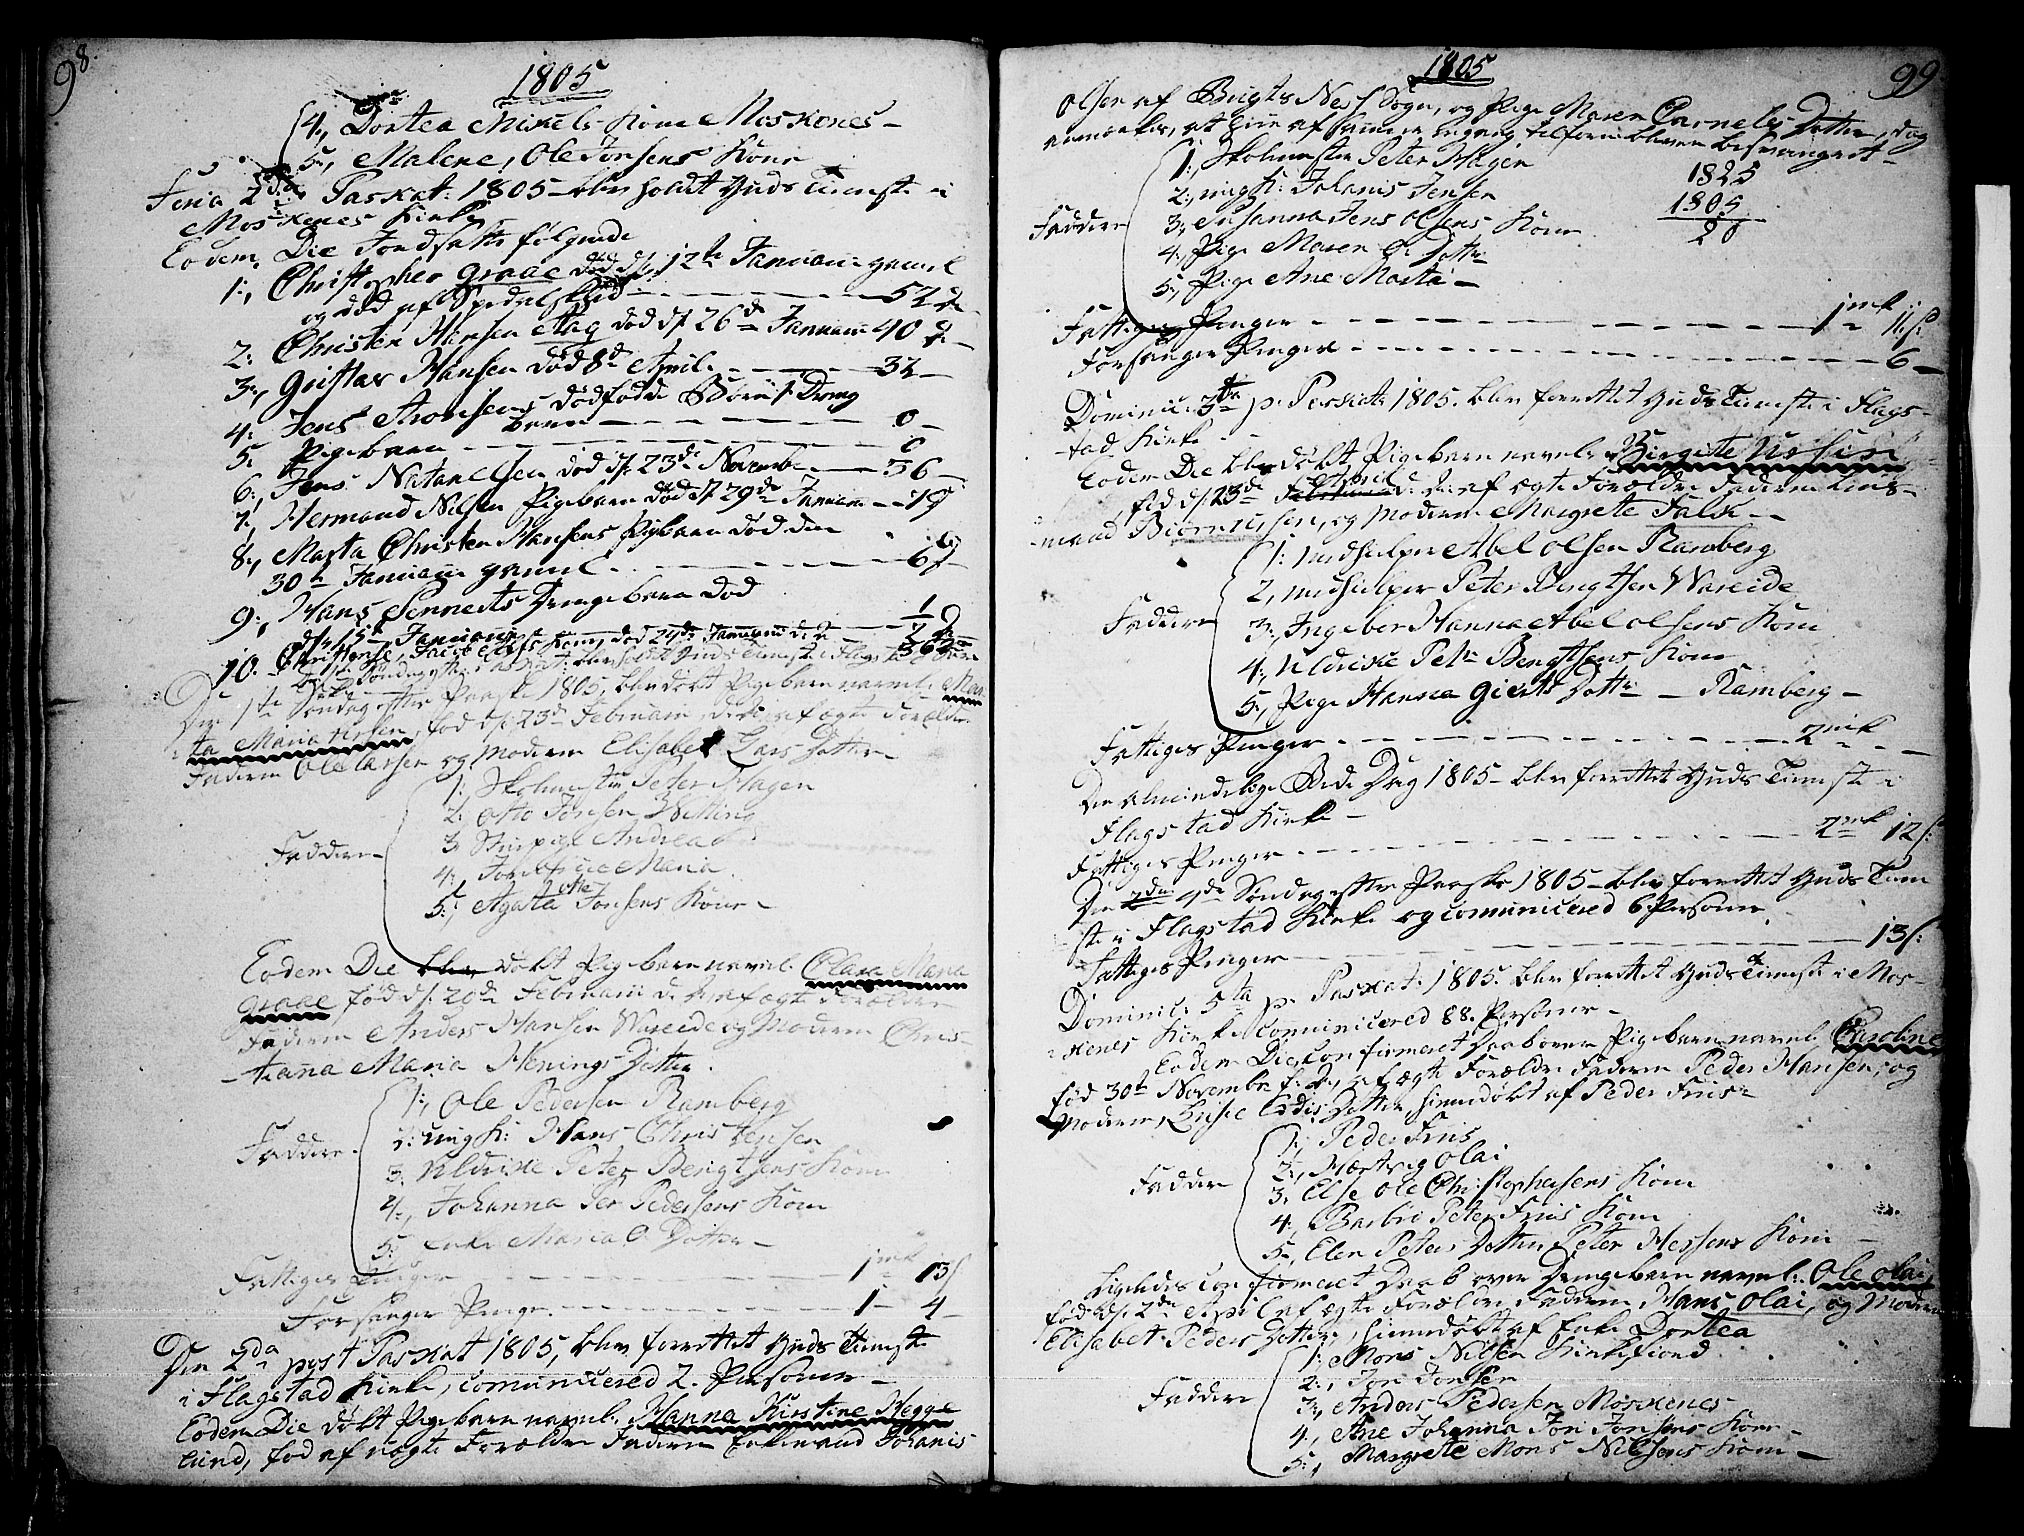 98.
1805
4., Dortea Mikels Kone Moskenes
5., Malene, Ole Jonsens Kone
Feria 2da Paskat: 1805 blev holdt Guds Tieneste i
Moskenes Kirke
Eodem Die Jordsatte følgende
1., Christopher Graae død d: 12te Januari gamel
og død af Spedalskhed 52
2: Christen Hansen Aag død d: 26de Januari 40
3., Gustav Hansen død 8de April 32
4: Jens Aronsens dødfødde Børn 1 Dreng
barn 0
5: Pigebarn 0
6., Jens Natanelsen død d: 23de Novembr 36
7., Hermand Nilsens Pigebarn død d: 29de Januari 19
8., Marta Christen Hansens Pigebarn død den
30te Januari gamel 6
9., Hans Sennerts Drengebarn død
d: 15de Januari 1/2
10. Christense, Jacob Kone, død 24de Januari 36
Den 1ste Søndag efter Paaske 1805, blev døbt Pigebarn navnl: Mar-
ta Maria, fød d: 23de Februari, af ægte Forældre
Faderen Ole Larsen og Moderen Elisabet Lars Datter
1: Skolmester Peter Hagen
2: Otto Jonsen Welling
3, Andrea
Faddere
4., Maria
5., Agata Otto Jonsens Kone
Eodem Die blev døbt Pigebarn navnl: Clara Maria
Graae, fød d: 20de Februari af ægte Forældre
Faderen Anders Hansen Wareide og Moderen Chris-
tiana Maria Henings Datter
1., Ole Pedersen Ramberg
2: ung k: Hans Christensen
Faddere
3., Uldrike Peter Bengtsens Kone
4., Johanna Per Pedersens Kone
5: Enke Maria O. Datter
Fattiges Penger 1 mk 13 s
Forsanger Penge 1 4
Den 2da post Paskat 1805, blev forrettet Guds Tieneste
i Flagstad Kirke, comunicered 2. Personer
Eodem Die døbt Pigebarn navnl: Hanna Kirstine Hegge-
lund, fød af uægte Forældre Faderen Enkemand Johanis
99
1805
Olsen af Bugts Næss Sogn, og Pige Maren Cornelis Datter, dog
anmærkes, at hun af samme engang tilforn bleven besvangret
1., Skolmester Peter Hagen
2., ung k: Johanis Jensen
Faddere
3., Susanna Jens Olsens Kone
4., Pige Maren E: Datter
5., Pige Ane Marta
1825
1805
20
Fattiges Penger 1 mk 11 s
Forsanger Penger 6
Dominic: 3tia p: Paskat: 1805. blev forrettet Guds Tieneste i Flags-
tad Kirke
Eodem Die blev døbt Pigebarn navnl: Birgite
fød d: 23de April af ægte Forældre Faderen Lens-
mand, og Moderen Margrete Falck
1: Medhielper Abel Olsen Ramberg
2, Medhielper Peter Bengtsen Wareide
Faddere
3., Ingeber Hanna Abel Olsens Kone
4., Uldrike Petr Bengtsens Kone
5., Pige Hanna Gierts Datter Ramberg
Fattiges Penger 2 mk
Den Almindelige Bede Dag 1805 blev forrettet Guds Tieneste i
Flagstad Kirke
Fattiges Penger 2 mk 12 s
Den 4de Søndag efter Paaske 1805 blev forrettet Guds Tiene-
ste i Flagstad Kirke og comunicered 6 Personer
Fattiges Penger 13 s
Dominic: 5ta p: Paskat: 1805. blev forrettet Guds Tieneste i Mos-
kenes Kirke comunicered 88. Personer
Eodem Die, confirmeret Daab over Pigebarn navnl: Caroline
fød 30te Novembr af ægte Forældre Faderen Peder Hansen, og
Moderen, Datter, hiemdøbt af Peder Friis
1., Peder Friis
2., Hartvig Olai
Faddere
3., Else Ole Christophersens Kone
4., Barbro Peter Friis Kone
5., Elen Peters Datter Peter Hessens Kone
Ligeledes confirmeret Daab over Drengebarn navnl: Ole Olai,
fød d: 2de April af ægte Forældre Faderen Hans Olai, og Moderen
Elisabet Peders Datter, hiemdøbt af Enke Dortea
1., Mons Nilsen Kirkefiord
2., Jon Jonsen
Faddere
3., Anders Pedersen Moskenes
4., Ane Johanna Jon Jonsens Kone
5., Margrete Mons Nilsens Kone